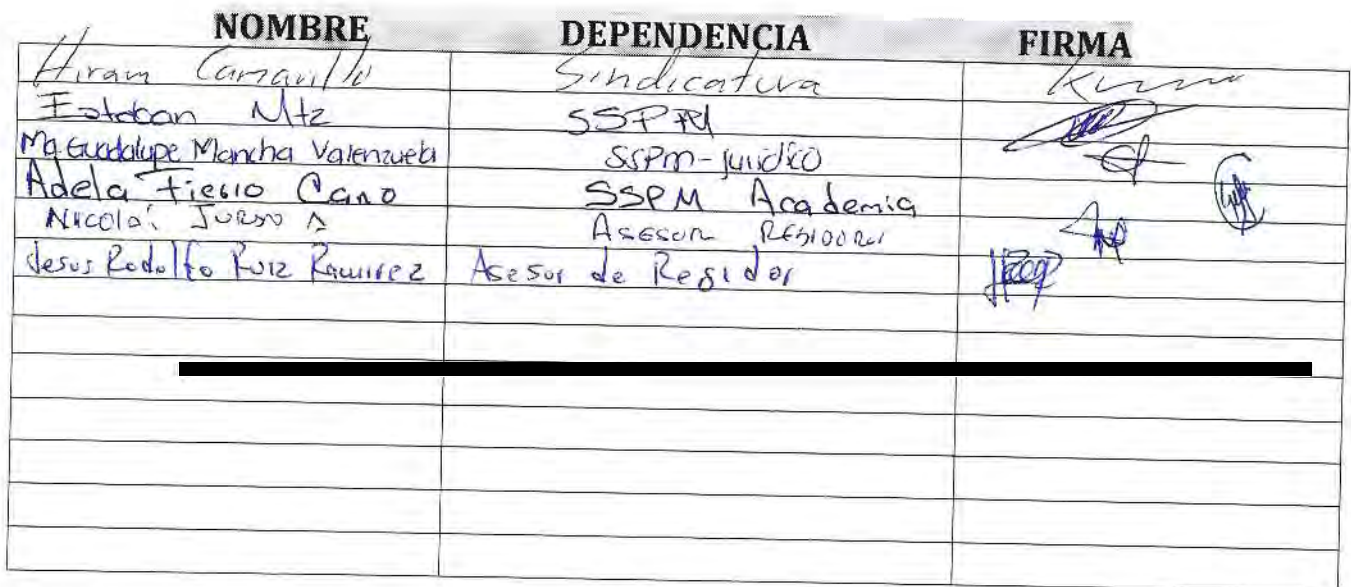 NOMBRE DEPENDENCIA FIRMA
Hiram Camarillo Sindicatura
Esteban Mtz SSPM
Ma Guadalupe Mancha Valenzuela SSPM-juridico
Adela Fierro Cano SSPM Academia
Nicolás A Asesor
Jesus Rodolfo Ruiz Ramirez Asesor de Regidor